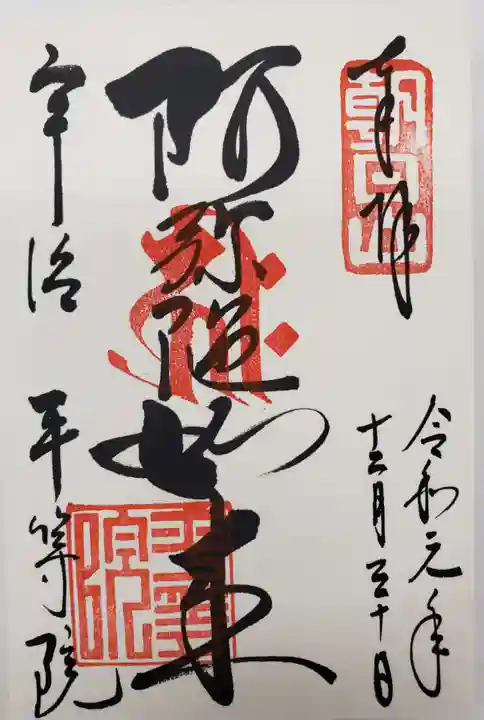 奉拝
令和元年
十二月三十日
阿弥陀如来
宇治 平等院